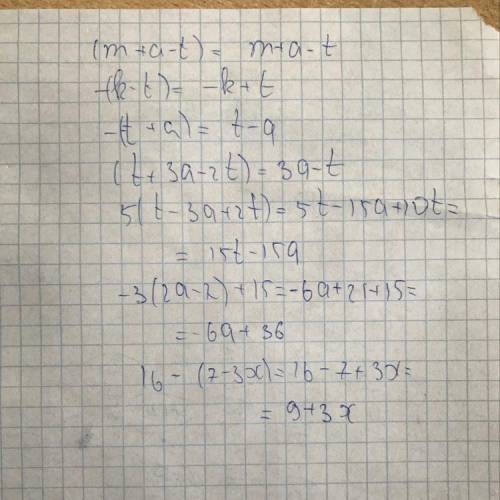 (m+a-t) = m+a-t
-(k-t) = -k+t
-(t+a) = t-a
(t+3a-2t) = 3a-t
5(t-3a+2t) = 5t-15a+10t=
= 15t-15a
-3(2a-7)+15=-6a+21+15=
=-6a+36
16-(7-3x)=16-7+3x=
= 9+3x